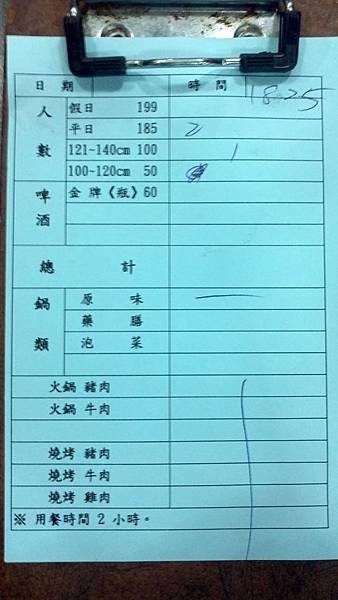 日 期 時 間 1825
人數
假日 199
平日 185 2
121~140cm 100 1
100~120cm 50
啤酒
金 牌《瓶》60
總 計
鍋類
原 味 一
藥 膳
泡 菜
火鍋 豬肉
火鍋 牛肉
燒烤 豬肉
燒烤 牛肉
燒烤 雞肉
※ 用餐時間 2 小時。